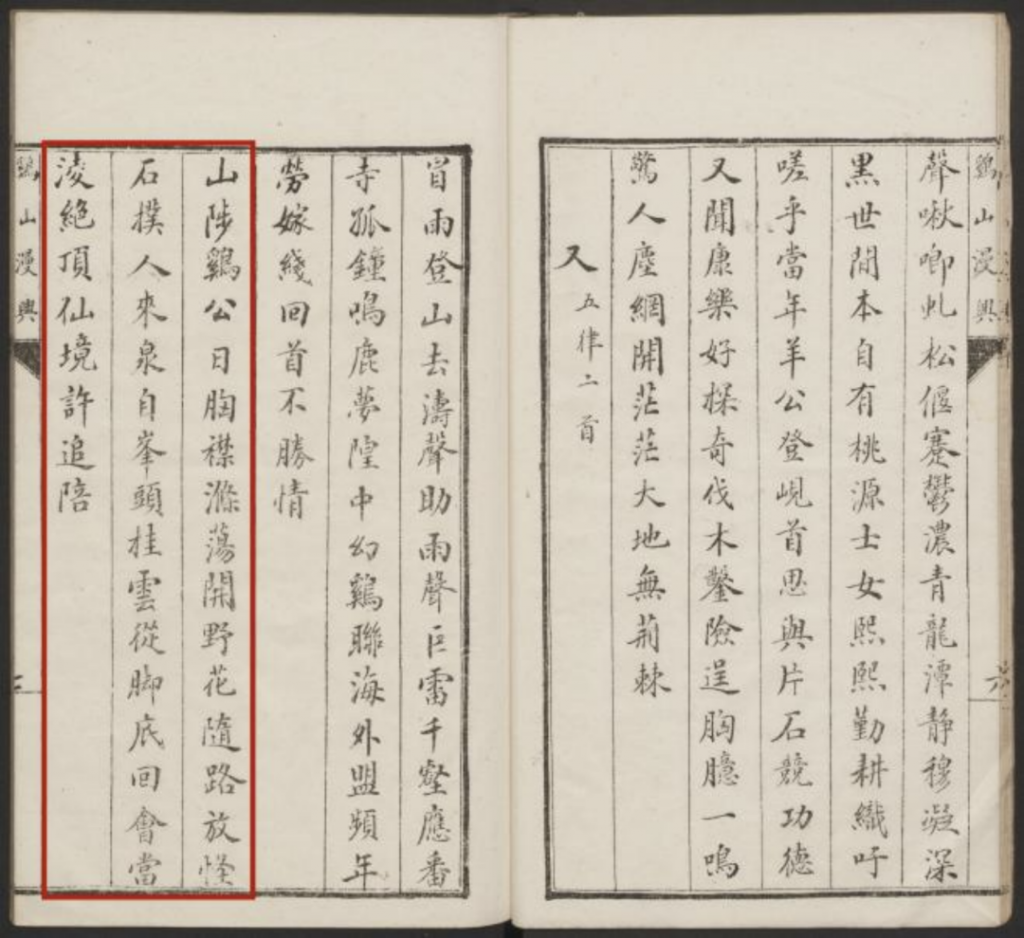 鷄山漫興
六
聲啾唧虬松偃蹇鬱濃青龍潭静穆凝深
黑世間本自有桃源士女熙熙勤耕織吁
嗟乎當年羊公登峴首思與片石競功德
又聞康樂好探奇伐木鑿險逞胸臆一鳴
驚人塵網開茫茫大地無荆棘
又 五律二首
冒雨登山去濤聲助雨聲巨雷千壑應番
寺孤鐘鳴鹿夢隍中幻鷄聯海外盟頻年
勞嫁綫回首不勝情
山陟鷄公日胸襟滌蕩開野花隨路放怪
石撲人來泉自峯頭桂雲從脚底回會當
淩絶頂仙境許追陪
鷄山漫興